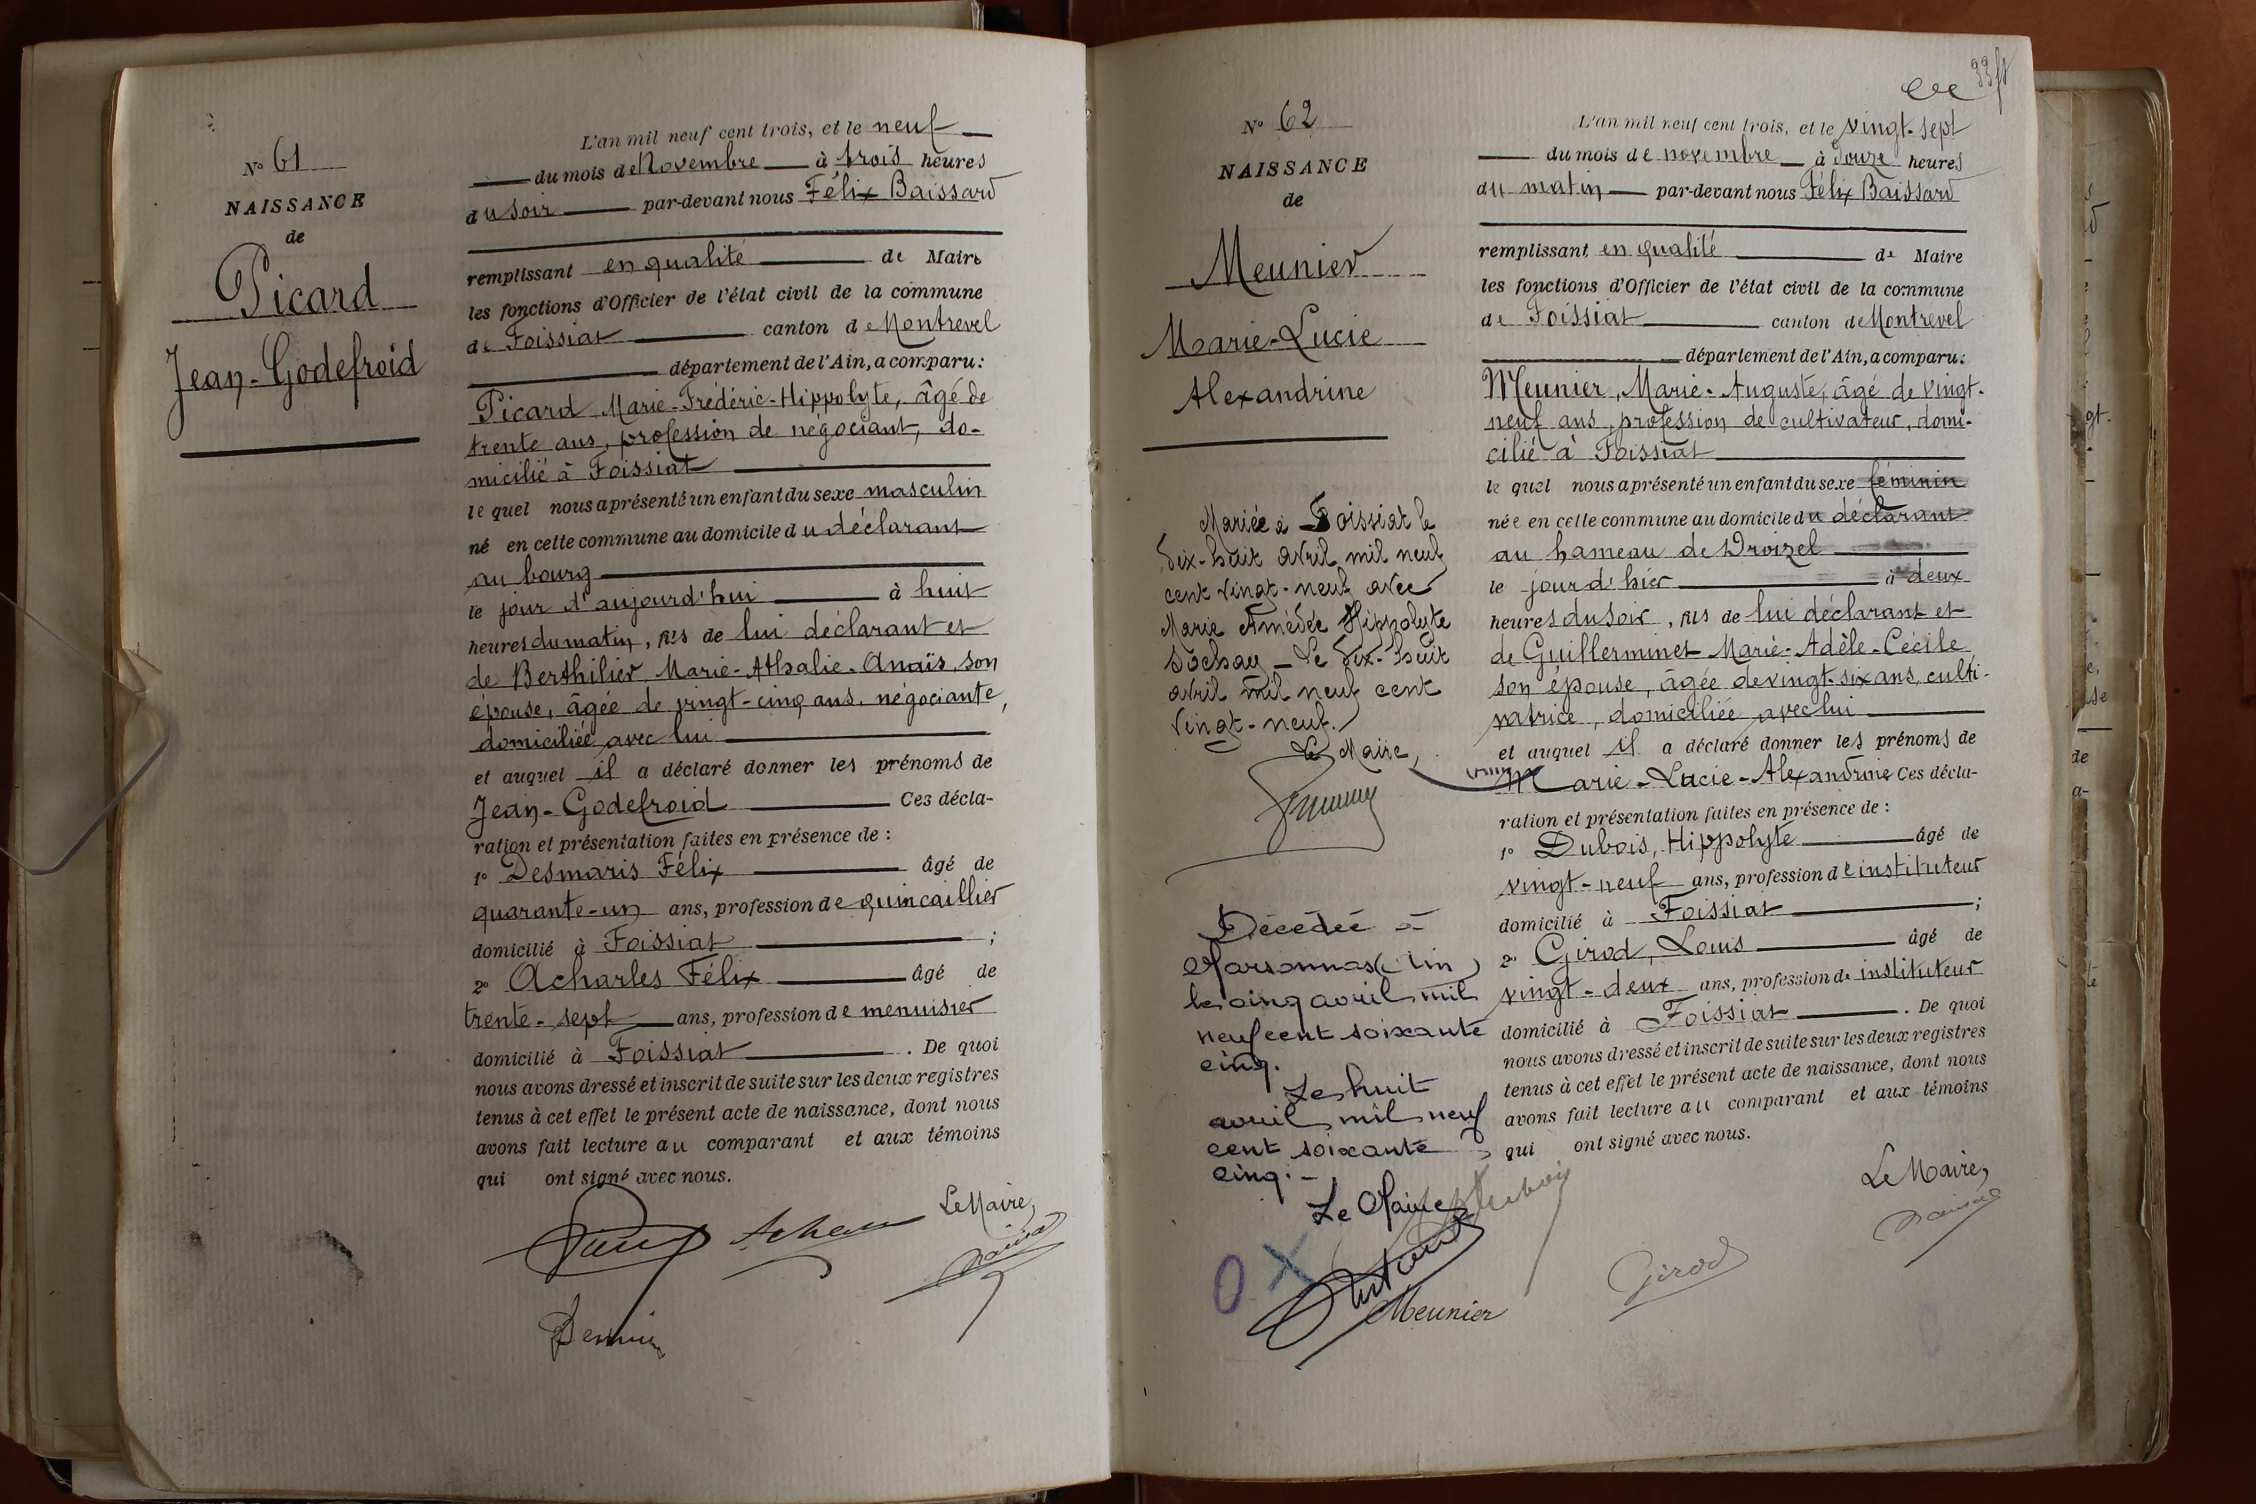 N° 61
NAISSANCE
de
Picard
Jean-Godefroid
L'an mil neuf cent trois, et le neuf
du mois de Novembre à trois heures
du soir par-devant nous Félix Baissard
remplissant en qualité de Maire
les fonctions d'Officier de l'état civil de la commune
de Foissiat canton de Montrevel
département de l'Ain, a comparu:
Picard Marie-Frédéric-Hippolyte, âgé de
trente ans, profession de négociant, do-
micilié à Foissiat
le quel nous a présenté un enfant du sexe masculin
né en cette commune au domicile du déclarant
au bourg
le jour d'aujourd'hui à huit
heures du matin, fils de lui déclarant et
de Berthilier Marie-Athalie-Anaïs, son
épouse, âgée de vingt-cinq ans, négociante,
domiciliée avec lui
et auquel il a déclaré donner les prénoms de
Jean-Godefroid Ces décla-
ration et présentation faites en présence de :
1° Desmaris Félix âgé de
quarante-un ans, profession de quincaillier
domicilié à Foissiat ;
2° Acharles Félix âgé de
trente-sept ans, profession de menuisier
domicilié à Foissiat . De quoi
nous avons dressé et inscrit de suite sur les deux registres
tenus à cet effet le présent acte de naissance, dont nous
avons fait lecture au comparant et aux témoins
qui ont signé avec nous.
Le Maire,
33
N° 62
NAISSANCE
de
Meunier
Marie-Lucie
Alexandrine
Mariée à Foissiat le
dix-huit avril mil neuf
cent vingt-neuf avec
Marie Amédée Hippolyte
Sochay - Le dix-huit
avril mil neuf cent
vingt-neuf.
Le Maire,
Décédée à
Marsonnas (Ain)
le cinq avril mil
neuf cent soixante
cinq.
Le huit
avril mil neuf
cent soixante
cinq.-
Le Maire
L'an mil neuf cent trois, et le vingt-sept
du mois de novembre à douze heures
du matin par-devant nous Félix Baissard
remplissant en qualité de Maire
les fonctions d'Officier de l'état civil de la commune
de Foissiat canton de Montrevel
département de l'Ain, a comparu:
Meunier, Marie-Auguste, âgé de vingt-
neuf ans, profession de cultivateur, domi-
cilié à Foissiat
le quel nous a présenté un enfant du sexe féminin
née en cette commune au domicile du déclarant
au hameau de Droizel
le jour d'hier à deux
heures du soir, fils de lui déclarant et
de Guillerminet Marie-Adèle-Cécile
son épouse, âgée de vingt-six ans, culti-
vatrice, domiciliée avec lui
et auquel il a déclaré donner les prénoms de
Marie-Lucie-Alexandrine Ces décla-
ration et présentation faites en présence de :
1° Dubois, Hippolyte âgé de
vingt-neuf ans, profession de instituteur
domicilié à Foissiat ;
2° Girod, Louis âgé de
vingt-deux ans, profession de instituteur
domicilié à Foissiat . De quoi
nous avons dressé et inscrit de suite sur les deux registres
tenus à cet effet le présent acte de naissance, dont nous
avons fait lecture au comparant et aux témoins
qui ont signé avec nous.
Le Maire,
Dubois
Girod
Meunier